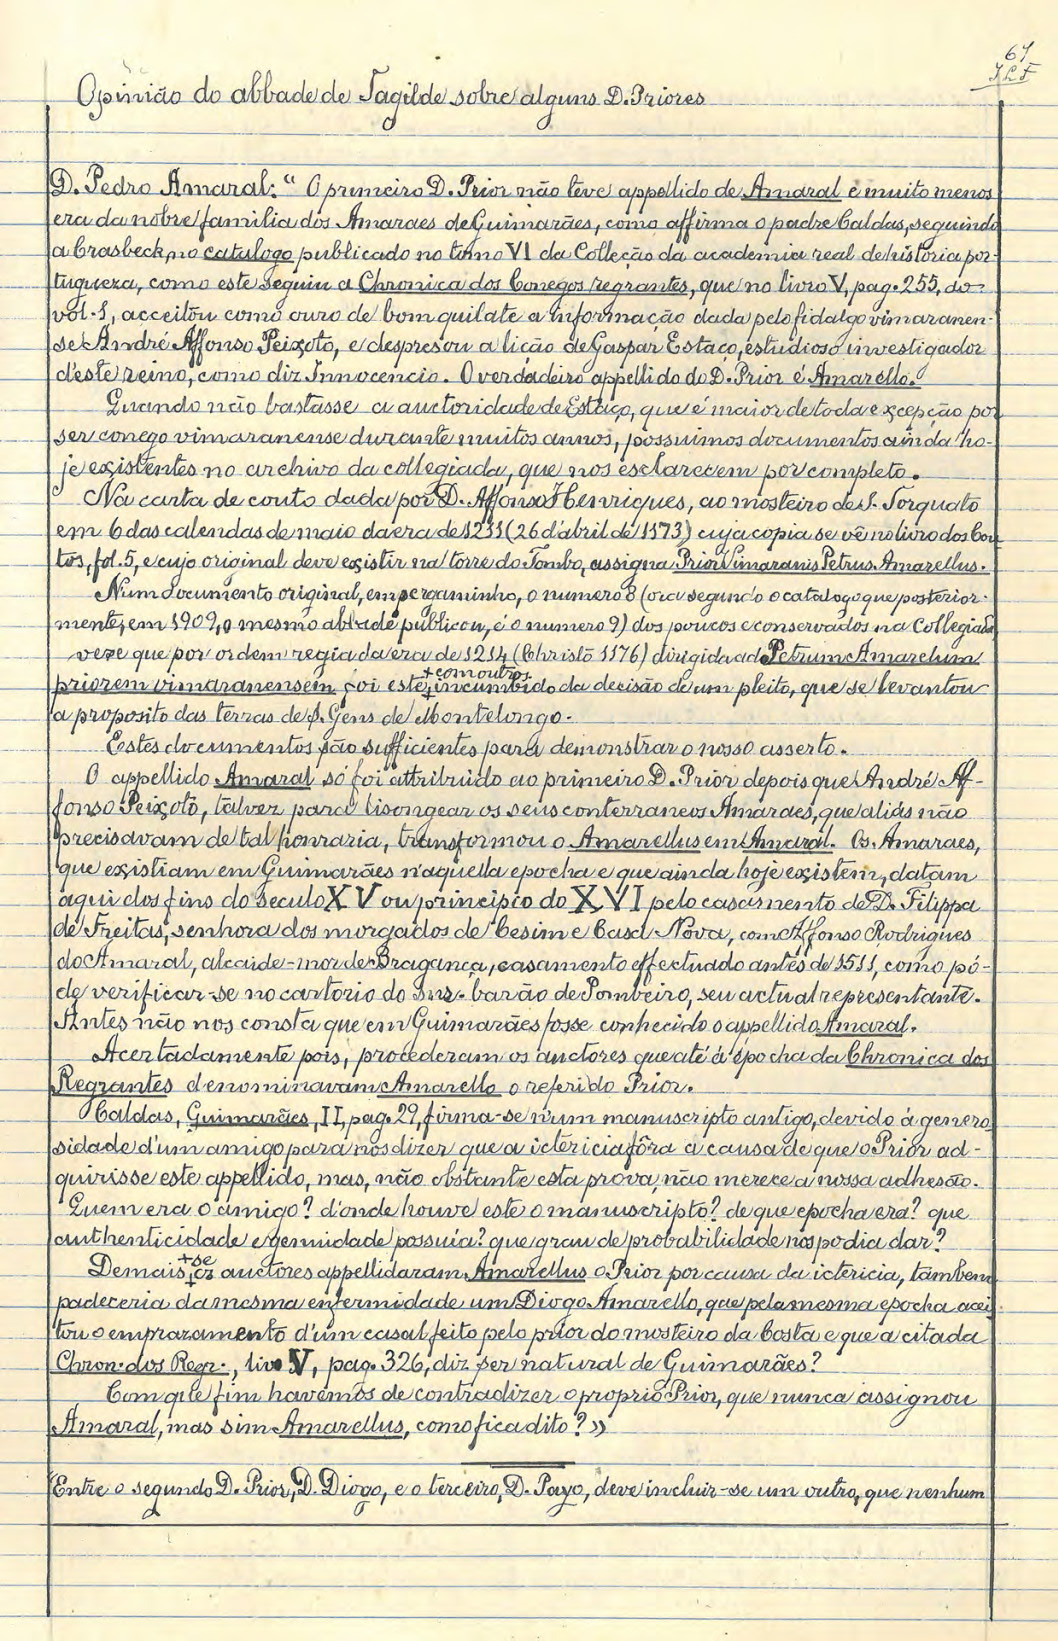 67
Opinião do abbade de Tagilde sobre alguns D. Priores
D. Pedro Amaral: “ O primeiro D. Prior não teve appellido de Amaral e muito menos
era da nobre familia dos Amaraes de Guimarães, como affirma o padre Caldas, seguindo
a Crasbeck, no catalogo publicado no tomo VI da Collecção da academia real de historia por-
tugueza, como este seguiu a Chronica dos Conegos regrantes, que no livro V, pag. 255, do
vol. 1, acceitou como ouro de bom quilate a informação dada pelo fidalgo vimaranen-
se André Affonso Peixoto, e despresou a lição de Gaspar Estaço, estudioso investigador
d'este reino, como diz Innocencio. O verdadeiro appellido do D. Prior é Amarello.
Quando não bastasse a auctoridade de Estaço, que é maior de toda excepção por
ser conego vimaranense durante muitos annos, possuimos documentos ainda ho-
je existentes no archivo da collegiada, que nos esclarecem por completo.
Na carta de couto dada por D. Affonso Henriques, ao mosteiro de S. Torquato
em 6 das calendas de maio da era de 1211 (26 d'abril de 1173) cuja copia se vê no livro dos Cou-
tos, fol. 5, e cujo original deve existir na torre do Tombo, assigna Prior Vimaranis Petrus Amarellus.
Num documento original, em pergaminho, o numero 8 (ora segundo o catalogo que posterior-
mente, em 1909, o mesmo abbade publicou, é o numero 9) dos poucos conservados na Collegiada
vêse que por ordem regia da era de 1214 (Christo 1176) dirigida ad Petrum Amarelum
+ com outros
priorem vimaranensem foi este + incumbido da decisão de um pleito, que se levantou
a proposito das terras de S. Gens de Montelongo.
Estes documentos são sufficientes para demonstrar o nosso asserto.
O appellido Amaral só foi attribuido ao primeiro D. Prior depois que André Af-
fonso Peixoto, talvez para lisongear os seus conterraneos Amaraes, que aliás não
precisavam de tal honraria, transformou o Amarellus em Amaral. Os Amaraes,
que existiam em Guimarães n'aquella epocha e que ainda hoje existem, datam
aqui dos fins do seculo XV ou principio do XVI pelo casamento de D. Filippa
de Freitas, senhora dos morgados de Cesim e Casa Nova, com Affonso Rodrigues
do Amaral, alcaide-mor de Bragança, casamento effectuado antes de 1511, como pó-
de verificar-se no cartorio do snr. barão de Pombeiro, seu actual representante.
Antes não nos consta que em Guimarães fosse conhecido o appellido Amaral.
Acertadamente pois, procederam os auctores que até á epocha da Chronica dos
Regrantes denominavam Amarello o referido Prior.
Caldas, Guimarães, II, pag. 29, firma-se n'um manuscripto antigo, devido á genero-
sidade d'um amigo para nos dizer que a ictericia fôra a causa de que o Prior ad-
quirisse este appellido, mas, não obstante esta prova, não merece a nossa adhesão.
Quem era o amigo? d'onde houve este o manuscripto? de que epocha era? que
authenticidade e genuidade possuia? que grau de probabilidade nos podia dar?
+ se
Demais, + os auctores appellidaram Amarellus o Prior por causa da ictericia, tambem
padeceria da mesma enfermidade um Diogo Amarello, que pela mesma epocha acei-
tou o emprazamento d'um casal feito pelo prior do mosteiro da Costa e que a citada
Chron. dos Regr., livo V, pag. 326, diz ser natural de Guimarães?
Com que fim havemos de contradizer o proprio Prior, que nunca assignou
Amaral, mas sim Amarellus, como fica dito? »
Entre o segundo D. Prior, D. Diogo, e o terceiro, D. Payo, deve incluir-se um outro, que nenhum